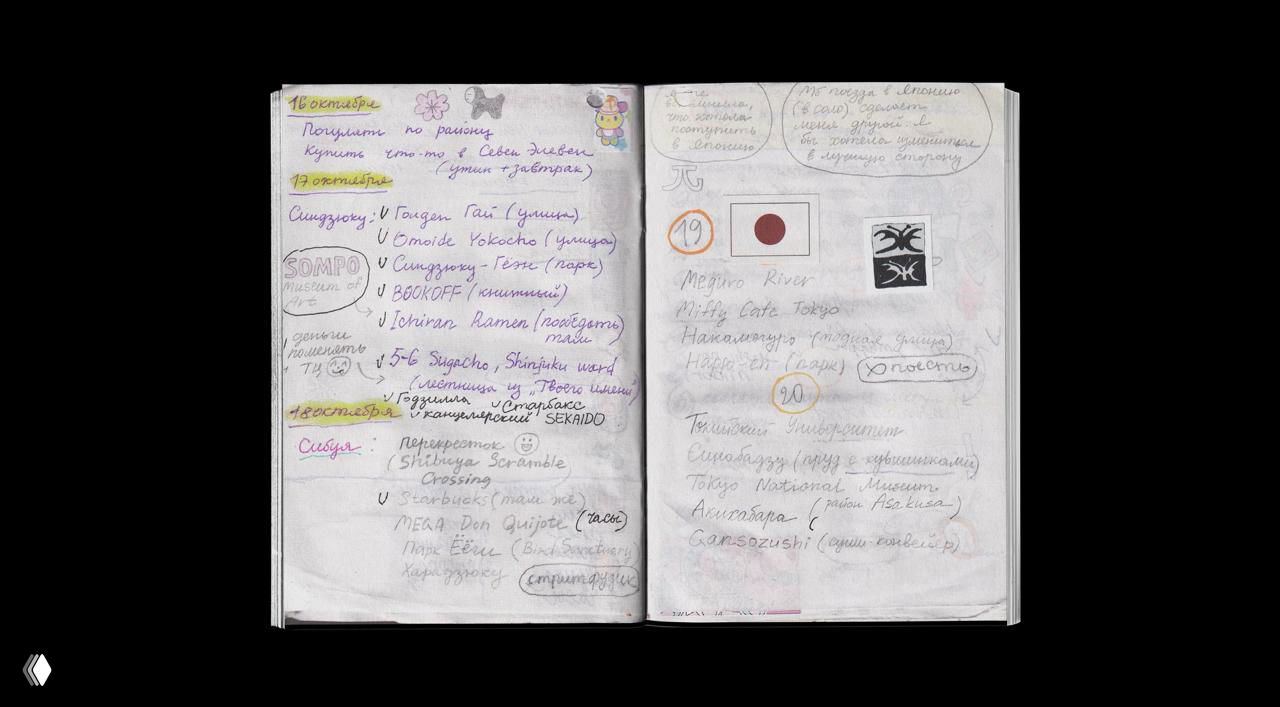 16 октября
Погулять по району
Купить что-то в Севен Элевен
(ужин + завтрак)
17 октября
Синдзюку:
Голден Гай (улица)
Omoide Yokocho (улица)
Синдзюку-Гёэн (парк)
BOOKOFF (книжный)
SOMPO
Museum of
Art
Ichiran Ramen (пообедать)
там
деньги
поменять
ТЦ
5-6 Sugacho, Shinjuku ward
(лестница из „Твоего имени")
Годзилла
Старбакс
канцелярский SEKAIDO
18 октября
Сибуя:
перекресток
(Shibuya Scramble
Crossing
Starbucks (там же)
MEGA Don Quijote (часы)
Парк Ёёги (Bird Sanctuary)
Харадзюку
стритфудик
что хотела
поступить
в Японию
Мб поезда в Японию
(в соло) сделает
меня другой. Я
бы хотела измениться
в лучшую сторону
19
Meguro River
Miffy Cafe Tokyo
Накамегуро (модная улица)
(парк)
поесть
20
Токийский Университет
Синобадзу (пруд с кувшинками)
Tokyo National Museum
Акихабара (район Asakusa)
Gansozushi (суши-конвейер)